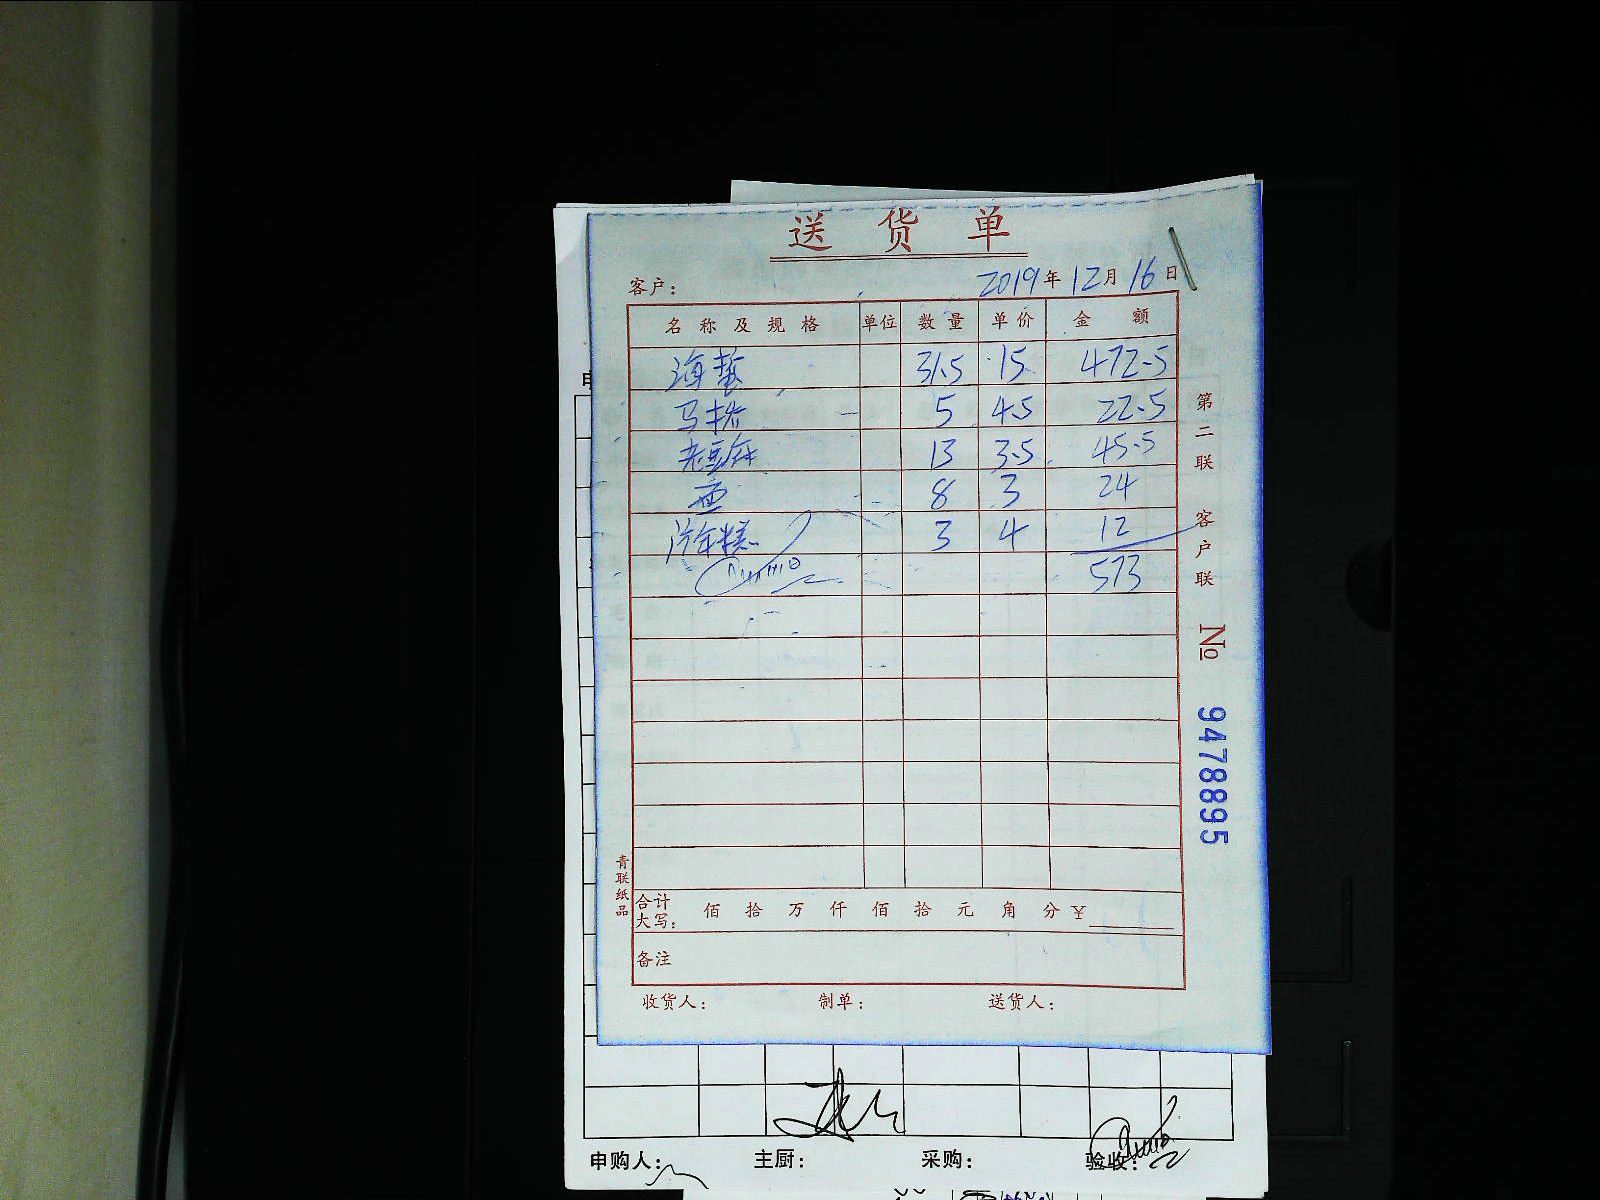 送货单
客户： 2019年12月16日
名称及规格 单位 数量 单价 金额
海蜇 31.5 15 472.5
5 4.5 22.5
老豆 13 3.5 45.5
8 3 24
年糕 3 4 12
573
第二联 客户联
№ 9478895
青联纸品
合计大写： 佰 拾 万 仟 佰 拾 元 角 分 ¥
备注
收货人： 制单： 送货人：
申购人： 主厨： 采购： 验收：